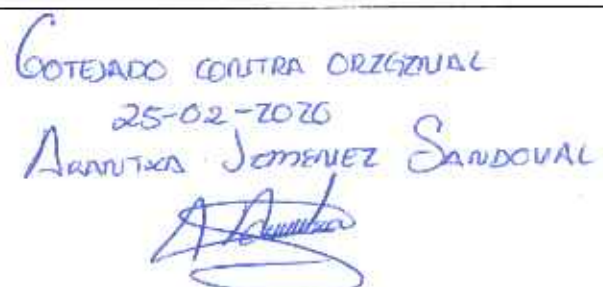 COTEJADO CONTRA ORIGINAL
25-02-2020
ARANTXA JIMENEZ SANDOVAL